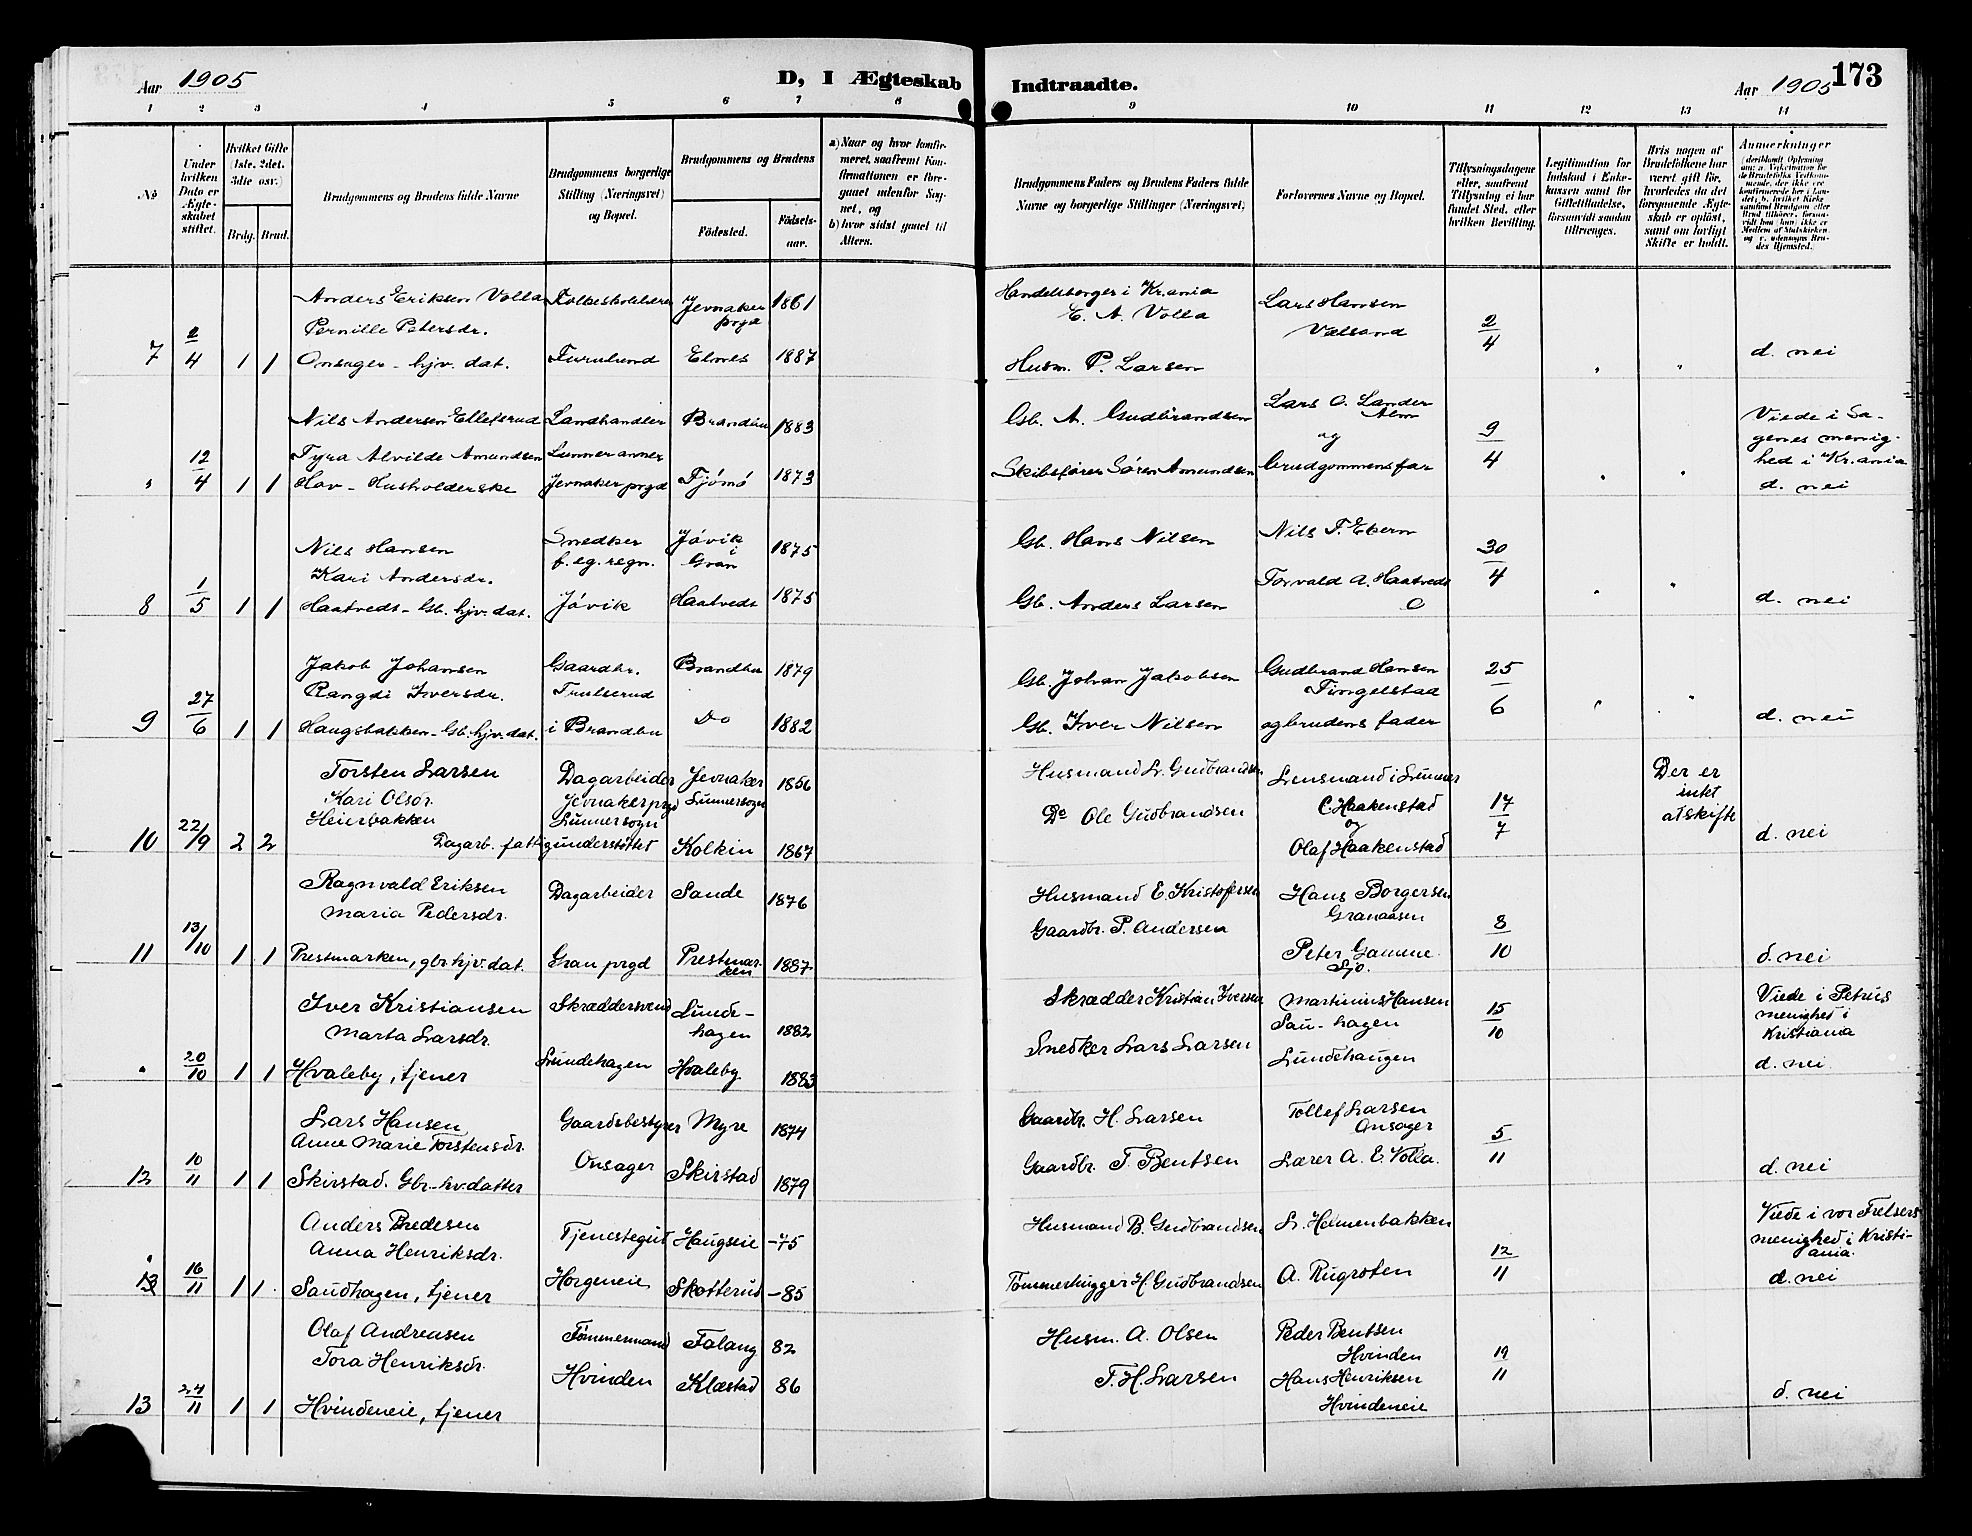 Aar 1905
D, I Ægteskab Indtraadte.
Aar 1905
173
1 2 3 4 5 6 7 8 9 10 11 12 13 14
No
Under hvilken Dato er Ægteskabet stiftet.
Hvilket Gifte (1ste, 2det, 3die osv.)
Brdg. Brud.
Brudgommens og Brudens fulde Navne
Brudgommens borgerlige Stilling (Næringsvei) og Bopæl.
Brudgommens og Brudens
Fødested.
Fødselsaar.
a) Naar og hvor konfirmeret, saafremt Konfirmationen er foregaaet udenfor Sognet, og
b) hvor sidst gaaet til Alters.
Brudgommens Faders og Brudens Faders fulde Navne og borgerlige Stillinger (Næringsvei)
Forlovernes Navne og Bopæl.
Tillysningsdagene eller, saafremt Tillysning ei har fundet Sted, efter hvilken Bevilling.
Legitimation for Indskud i Enkekassen samt for Giftetilladelse, forsaavidt saadan tiltrænges.
Hvis nogen af Brudefolkene har været gift før, hvorledes da det foregaaende Ægteskab er opløst, samt om lovligt Skifte er holdt.
Anmerkninger
7 2/4 1 1 Anders Eriksen Volla Folkeskolelærer Jevnaker prgd 1861 Handelsborger i Kr.ania E. A. Volla Lars Hansen Vælsand 2/4
Pernille Petersdr.
Onsager - hjv. dat. Furulund Elnes 1887 Husm. P. Larsen d. nei
" 12/4 1 1 Nils Andersen Ellefsrud Landhandler Brandbu 1883 Gb. A. Gudbrandsen Lars O. Lander Alm og 9/4 Viede i Sagenes menighed i Kr.ania
Tyra Alvilde Amundsen Lunner annex
Hov - Husholderske Jevnaker prgd Tjömö 1873 Skibsfører Sören Amundsen brudgommens far d. nei
8 1/5 1 1 Nils Hansen Snedker f. eg. regn. Jövik i Gran 1875 Gb. Hans Nilsen Nils T. Ekern 30/4
Kari Andersdr.
Haatveds - Gb. hjv. dat. Jövik Haatveds 1875 Gb. Anders Larsen Torvald A. Haatveds d. nei
9 27/6 1 1 Jakob Johansen Gaardbr. Brandbu 1879 Gb. Johan Jakobsen Gudbrand Hansen Tingelstad 25/6
Rangdi Iversdr. Trulserud
Haugsbakken - Gb. hjv. dat. i Brandbu Do 1882 Gb. Iver Nilsen og brudens fader d. nei
10 22/9 2 2 Torsten Larsen Dagarbeider Jevnaker Lunnersogn 1856 Husmand L. Gudbrandsen Lensmand i Lunner C. Haakenstad og 17/7 Der er intet at skifte
Kari Olsdr. Jevnaker prgd
Heierbakken Lunnersogn
Dagarb. fattigunderstøttet Kolkin 1867 Do Ole Gudbrandsen Olaf Haakenstad d. nei
11 13/10 1 1 Ragnvald Eriksen Dagarbeider Sande 1876 Husmand E. Kristofersen Hans Borgersen Granaasen 8/10
Maria Pedersdr.
Prestmarken, gbr. hjv. dat. Gran prgd Prestmarken 1887 Gaardbr. P. Andersen Peter Gamme Sjo. d. nei
" 20/10 1 1 Iver Kristiansen Skræddersvend Lundehagen 1882 Skrædder Kristian Iversen Martinius Hansen Sau-hagen 15/10 Viede i Petrus menighed i Kristiania
Marta Larsdr.
Hvaleby, tjener Lundehagen Hvaleby 1883 Snedker Lars Larsen Lundehaugen d. nei
12 10/11 1 1 Lars Hansen Gaardsbestyrer Myre 1874 Gaardbr. H. Larsen Tollef Larsen Onsager 5/11
Anne Marie Torstensdr.
Skirstad. Gbr-hv. datter Onsager Skirstad 1879 Gaardbr. T. Bentsen Lærer A. E. Volla. d. nei
" 16/11 1 1 Anders Bredesen Tjenestegut Haugseie -75 Husmand B. Gudbrandsen L. Heimenbakken 12/11 Viede i vor Frelsers menighed i Kristiania.
Anna Henriksdr.
Sandhagen, tjener Horgeneie Skotterud -85 Tømmerhugger H. Gudbrandsen A. Rugroten d. nei
13 24/11 1 1 Olaf Andreasen Tømmermand Falang 82 Husm. A. Olsen Peder Bentsen Hvinden 19/11
Tora Henriksdr.
Hvindeneie, tjener Hvinden Klæstad 86 T. H. Larsen Hans Henriksen Hvindeneie d. nei